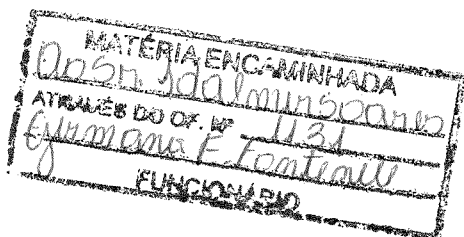 MATÉRIA ENCAMINHADA
Ao Sr. Idalmir Soares
ATRAVÉS DO OF. Nº 1131
Germana F Fontenele
FUNCIONÁRIO